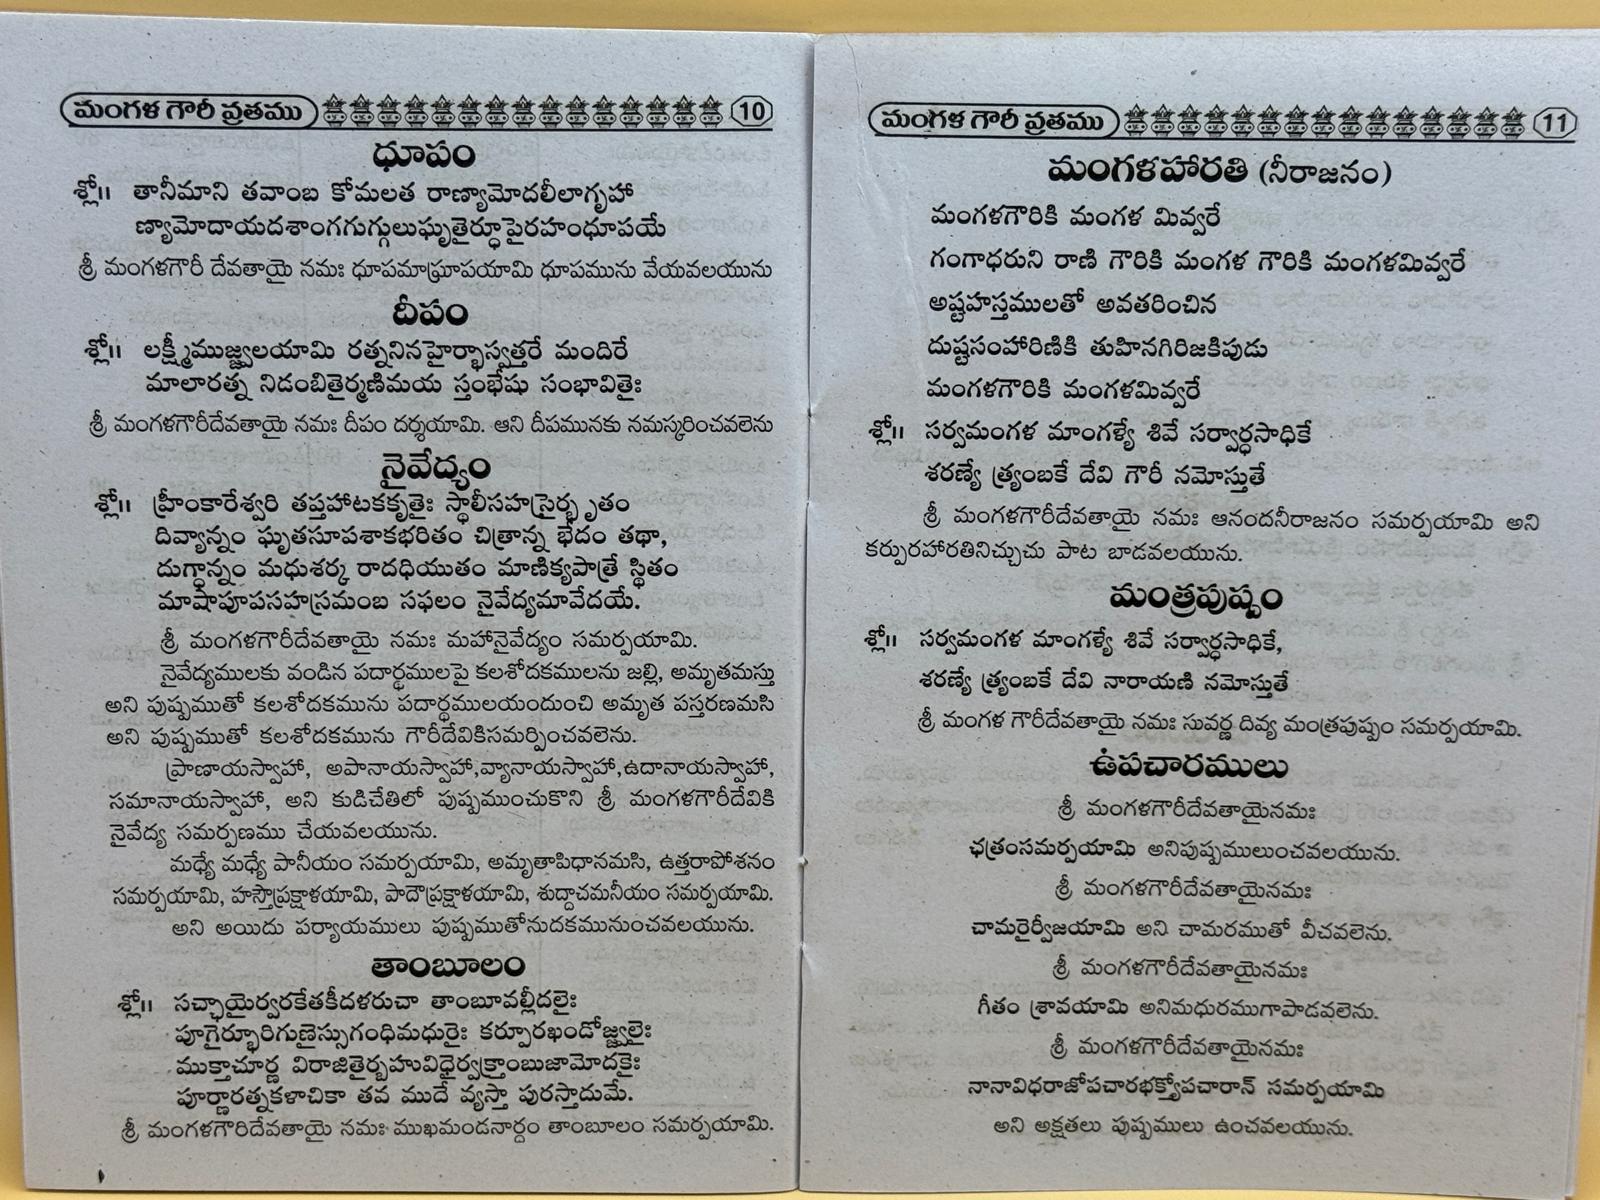 మంగళ గౌరీ వ్రతము 10
ధూపం
శ్లో॥ తానీమాని తవాంబ కోమలత రాణ్యామోదలీలాగృహా
ణ్యామోదాయదశాంగగుగ్గులుఘృతైర్ధూపైరహంధూపయే
శ్రీ మంగళగౌరీ దేవతాయై నమః ధూపమాఘ్రాపయామి ధూపమును వేయవలయును
దీపం
శ్లో॥ లక్ష్మీముజ్జ్వలయామి రత్ననినహైర్భాస్వత్తరే మందిరే
మాలారత్న నిడంబితైర్మణిమయ స్తంభేషు సంభావితైః
శ్రీ మంగళగౌరీదేవతాయై నమః దీపం దర్శయామి. ఆని దీపమునకు నమస్కరించవలెను
నైవేద్యం
శ్లో॥ హ్రీంకారేశ్వరి తప్తహాటకకృతైః స్థాలీసహస్రైర్భృతం
దివ్యాన్నం ఘృతసూపశాకభరితం చిత్రాన్న భేదం తథా,
దుగ్ధాన్నం మధుశర్క రాదధియుతం మాణిక్యపాత్రే స్థితం
మాషాపూపసహస్రమంబ సఫలం నైవేద్యమావేదయే.
శ్రీ మంగళగౌరీదేవతాయై నమః మహానైవేద్యం సమర్పయామి.
నైవేద్యములకు వండిన పదార్థములపై కలశోదకములను జల్లి, అమృతమస్తు
అని పుష్పముతో కలశోదకమును పదార్థములయందుంచి అమృత పస్తరణమసి
అని పుష్పముతో కలశోదకమును గౌరీదేవికిసమర్పించవలెను.
ప్రాణాయస్వాహా, అపానాయస్వాహా,వ్యానాయస్వాహా,ఉదానాయస్వాహా,
సమానాయస్వాహా, అని కుడిచేతిలో పుష్పముంచుకొని శ్రీ మంగళగౌరీదేవికి
నైవేద్య సమర్పణము చేయవలయును.
మధ్యే మధ్యే పానీయం సమర్పయామి, అమృతాపిధానమసి, ఉత్తరాపోశనం
సమర్పయామి, హస్తౌప్రక్షాళయామి, పాదౌప్రక్షాళయామి, శుద్ధాచమనీయం సమర్పయామి.
అని అయిదు పర్యాయములు పుష్పముతోనుదకమునుంచవలయును.
తాంబూలం
శ్లో॥ సచ్ఛాయైర్వరకేతకీదళరుచా తాంబూవల్లీదలైః
పూగైర్భూరిగుణైస్సుగంధిమధురైః కర్పూరఖండోజ్జ్వలైః
ముక్తాచూర్ణ విరాజితైర్బహువిధైర్వక్త్రాంబుజామోదకైః
పూర్ణారత్నకళాచికా తవ ముదే వ్యస్తా పురస్తాదుమే.
శ్రీ మంగళగౌరిదేవతాయై నమః ముఖమండనార్ధం తాంబూలం సమర్పయామి.
మంగళ గౌరీ వ్రతము 11
మంగళహారతి (నీరాజనం)
మంగళగౌరికి మంగళ మివ్వరే
గంగాధరుని రాణి గౌరికి మంగళ గౌరికి మంగళమివ్వరే
అష్టహస్తములతో అవతరించిన
దుష్టసంహారిణికి తుహినగిరిజకిపుడు
మంగళగౌరికి మంగళమివ్వరే
శ్లో॥ సర్వమంగళ మాంగళ్యే శివే సర్వార్ధసాధికే
శరణ్యే త్ర్యంబకే దేవి గౌరీ నమోస్తుతే
శ్రీ మంగళగౌరీదేవతాయై నమః ఆనందనీరాజనం సమర్పయామి అని
కర్పురహారతినిచ్చుచు పాట బాడవలయును.
మంత్రపుష్పం
శ్లో॥ సర్వమంగళ మాంగళ్యే శివే సర్వార్ధసాధికే,
శరణ్యే త్ర్యంబకే దేవి నారాయణి నమోస్తుతే
శ్రీ మంగళ గౌరీదేవతాయై నమః సువర్ణ దివ్య మంత్రపుష్పం సమర్పయామి.
ఉపచారములు
శ్రీ మంగళగౌరీదేవతాయైనమః
ఛత్రంసమర్పయామి అనిపుష్పములుంచవలయును.
శ్రీ మంగళగౌరీదేవతాయైనమః
చామరైర్వీజయామి అని చామరముతో వీచవలెను.
శ్రీ మంగళగౌరీదేవతాయైనమః
గీతం శ్రావయామి అనిమధురముగాపాడవలెను.
శ్రీ మంగళగౌరీదేవతాయైనమః
నానావిధరాజోపచారభక్త్యోపచారాన్ సమర్పయామి
అని అక్షతలు పుష్పములు ఉంచవలయును.